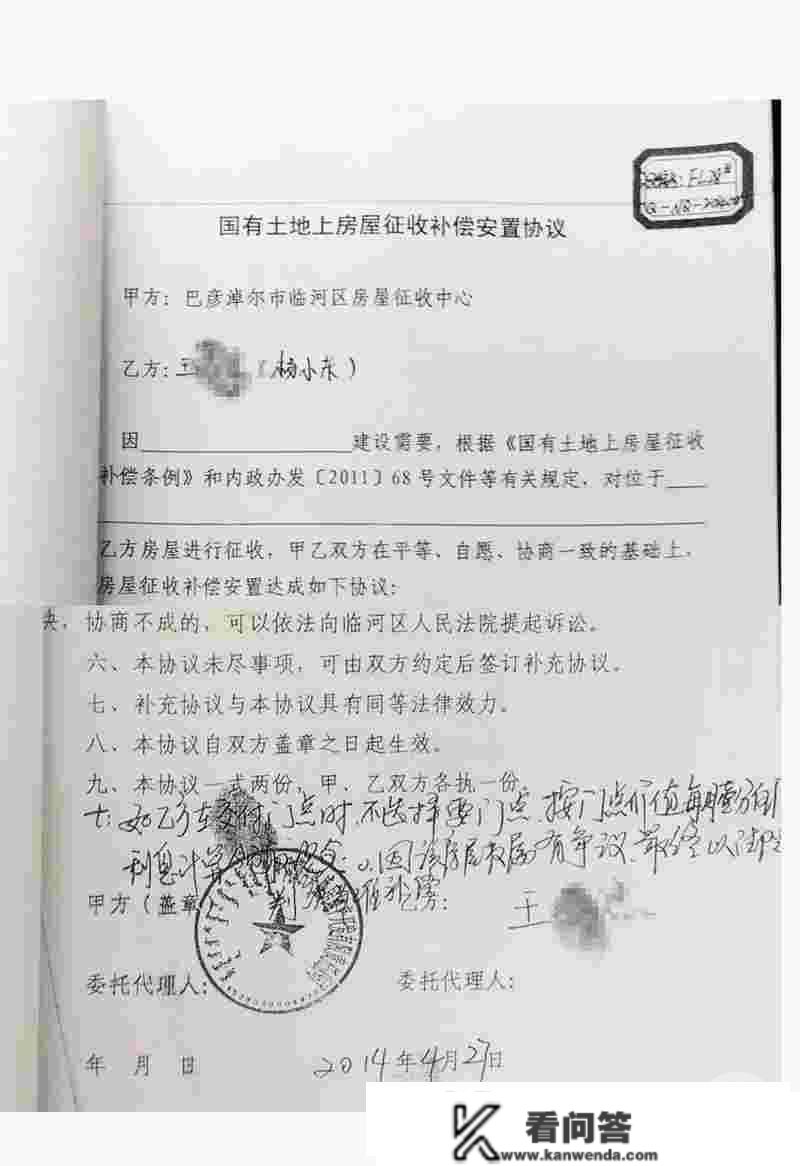 国有土地上房屋征收补偿安置协议
甲方：巴彦淖尔市临河区房屋征收中心
乙方：王 （杨小东）
因 建设需要，根据《国有土地上房屋征收
补偿条例》和内政办发〔2011〕68号文件等有关规定，对位于
乙方房屋进行征收，甲乙双方在平等、自愿、协商一致的基础上，
房屋征收补偿安置达成如下协议：
协商不成的，可以依法向临河区人民法院提起诉讼。
六、本协议未尽事项，可由双方约定后签订补充协议。
七、补充协议与本协议具有同等法律效力。
八、本协议自双方盖章之日起生效。
九、本协议一式两份，甲、乙双方各执一份。
如乙方在交付门点时，不选择要门点，按门点价值每月
利息计算 因该房屋权属有争议，最终以法院
甲方（盖章 判 方：
王
委托代理人： 委托代理人：
年 月 日 2014年4月27日
看问答
www.kanwenda.com